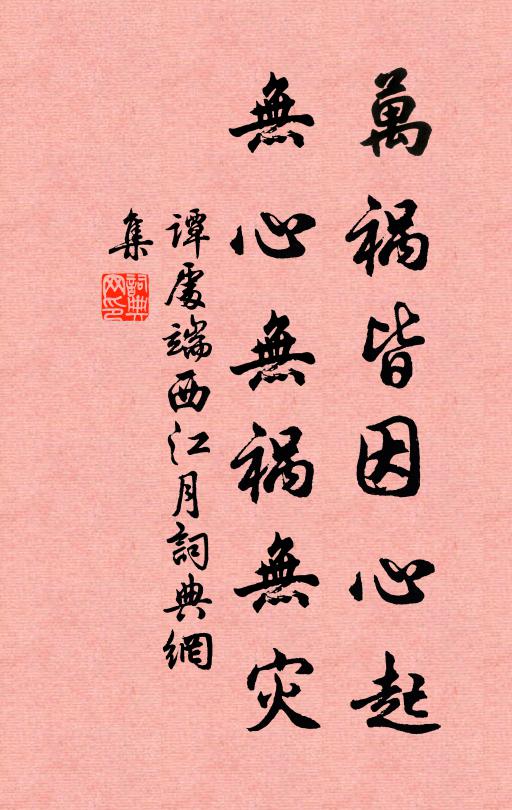 萬禍皆因心起
無心無禍無灾
譚處端西江月詞典網
集
詞典網印